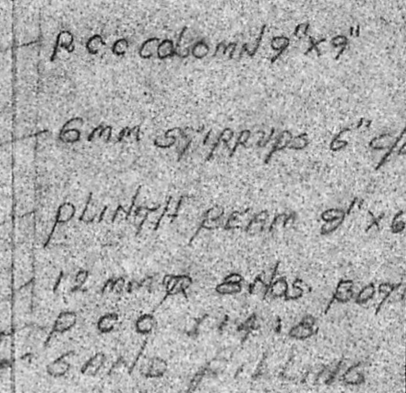 RCC COLOMN 9"x9"
6mm STIRRUPS 6" c/
PLINTH BEAM 9"x6
12 mm 8Nos. BOT
PCC 1:4:8
SAND FILLING